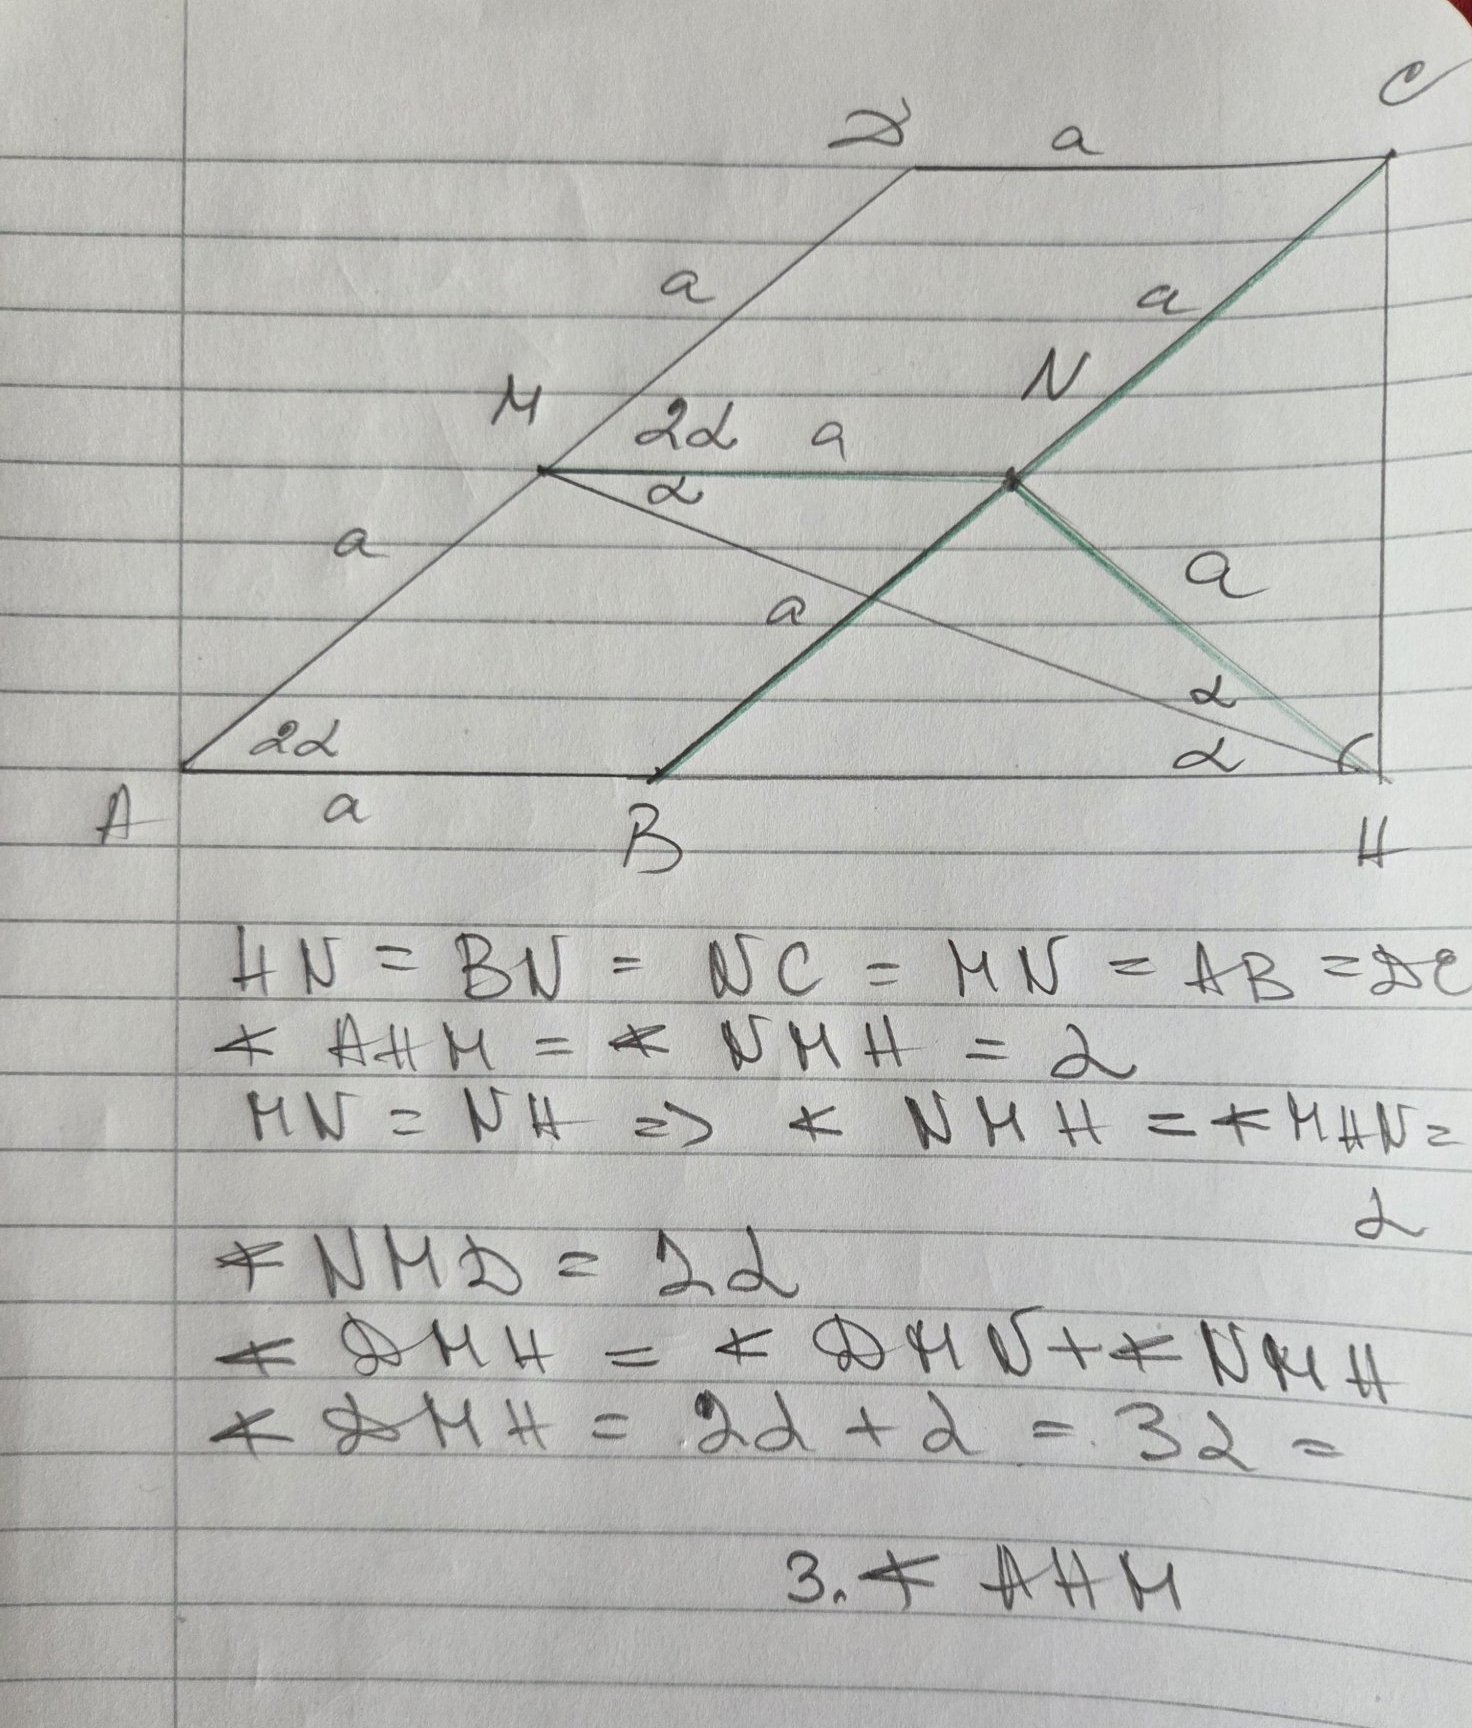 D a C
a a
M N
2α a
α
a a a
α
2α α
a
A B H
HN = BN = NC = MN = AB = DC
∢ AHM = ∢ NMH = α
MN = NH => ∢ NMH = ∢ MHN =
α
∢ NMD = 2α
∢ DMH = ∢ DMN + ∢ NMH
∢ DMH = 2α + α = 3α =
3. ∢ AHM